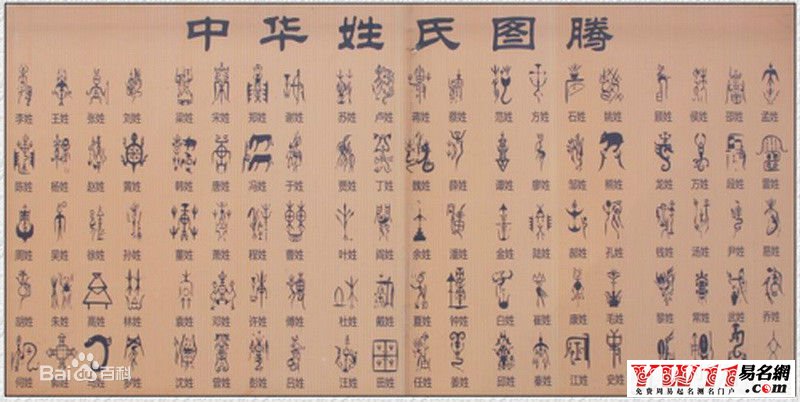 中华姓氏图腾
李姓 王姓 张姓 刘姓 梁姓 宋姓 郑姓 谢姓 苏姓 卢姓 蒋姓 蔡姓 范姓 方姓 石姓 姚姓 顾姓 侯姓 邵姓 孟姓
陈姓 杨姓 赵姓 黄姓 韩姓 唐姓 冯姓 于姓 贾姓 丁姓 魏姓 薛姓 谭姓 廖姓 邹姓 熊姓 龙姓 万姓 段姓 雷姓
周姓 吴姓 徐姓 孙姓 董姓 萧姓 程姓 曹姓 叶姓 阎姓 余姓 潘姓 金姓 陆姓 郝姓 孔姓 钱姓 汤姓 尹姓 易姓
胡姓 朱姓 高姓 林姓 袁姓 邓姓 许姓 傅姓 杜姓 戴姓 夏姓 钟姓 白姓 崔姓 康姓 毛姓 黎姓 常姓 武姓 乔姓
何姓 罗姓 沈姓 曾姓 彭姓 吕姓 汪姓 田姓 任姓 姜姓 邱姓 秦姓 江姓 史姓
Bai百科
易名网
免费周易起名测名门户